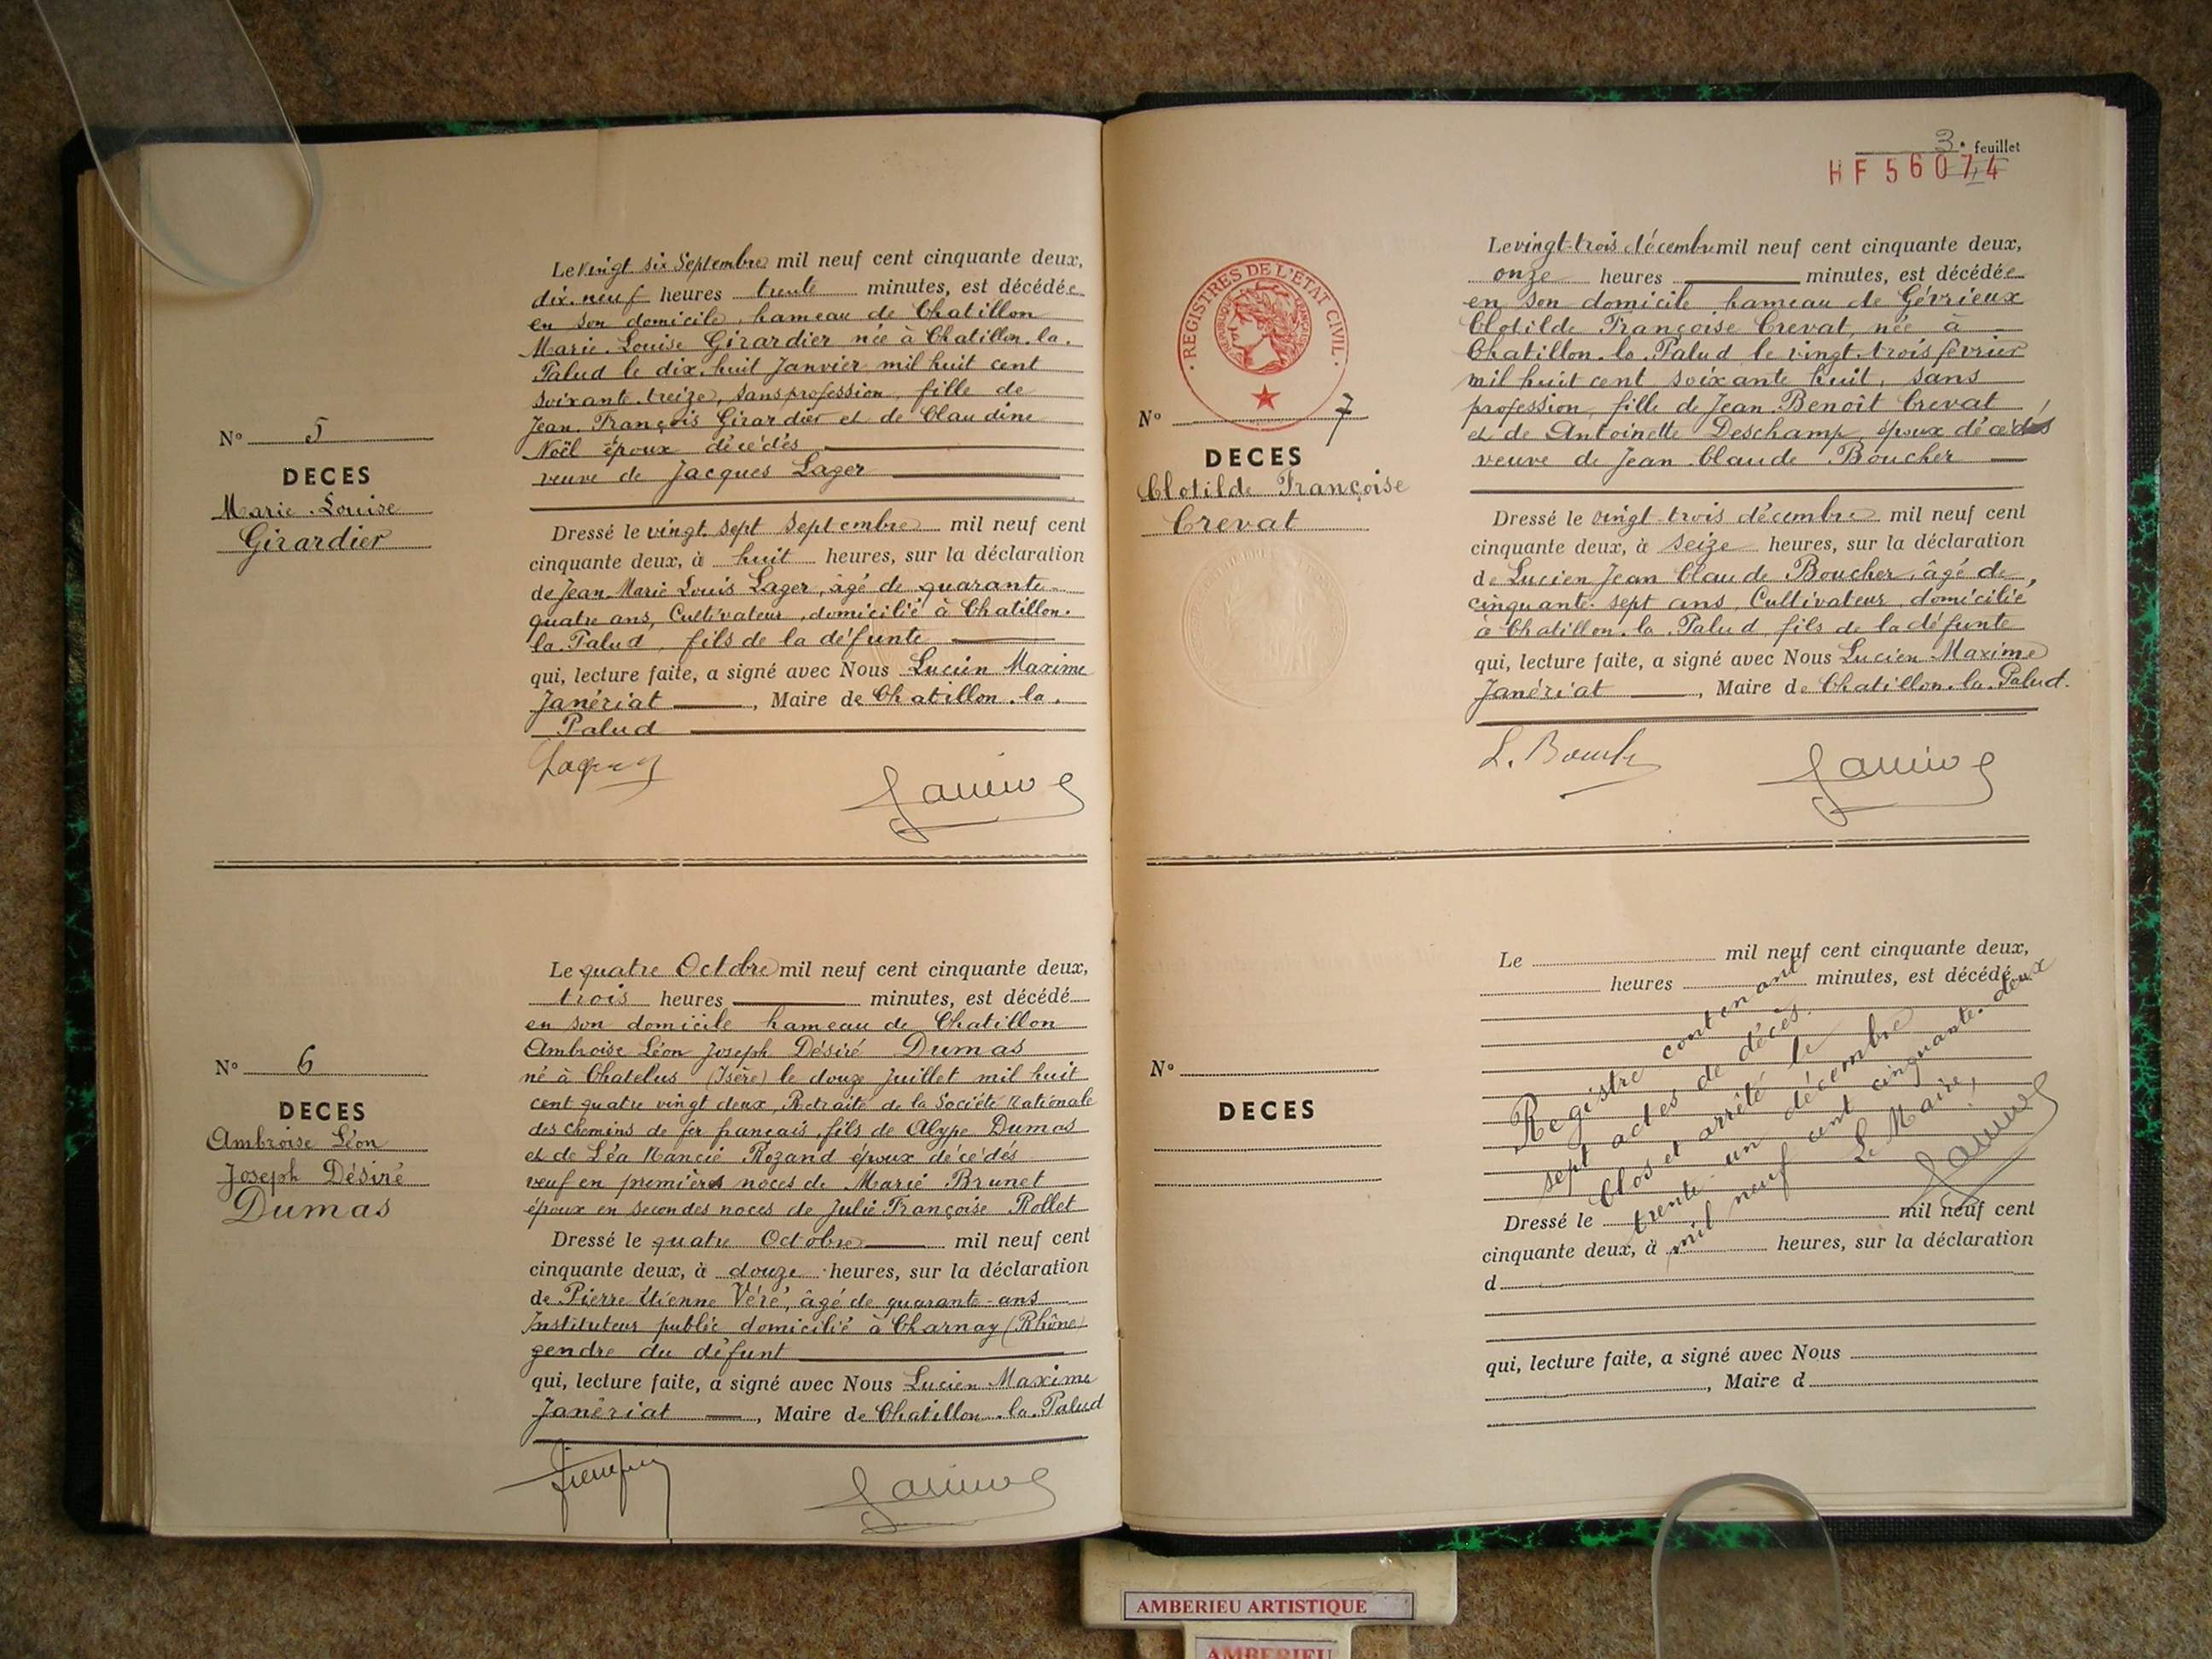 Le vingt six Septembre mil neuf cent cinquante deux,
dix-neuf heures trente minutes, est décédée
en son domicile, hameau de Chatillon
Marie-Louise Girardier née à Chatillon-la-
Palud le dix-huit Janvier mil huit cent
soixante-treize, sans profession, fille de
Jean-François Girardier et de Claudine
Noël époux décédés
veuve de Jacques Lager
N° 5
DECES
Marie-Louise
Girardier
Dressé le vingt-sept Septembre mil neuf cent
cinquante deux, à huit heures, sur la déclaration
de Jean-Marie Louis Lager, âgé de quarante-
quatre ans, Cultivateur, domicilié à Chatillon-
la-Palud, fils de la défunte
qui, lecture faite, a signé avec Nous Lucien Maxime
Janériat, Maire de Chatillon-la-
Palud
Le quatre Octobre mil neuf cent cinquante deux,
trois heures minutes, est décédé
en son domicile hameau de Chatillon
Ambroise Léon Joseph Désiré Dumas
né à Chatelus (Isère) le douze Juillet mil huit
cent quatre vingt deux, Retraité de la Société Nationale
des chemins de fer français, fils de Alype Dumas
et de Léa Nancie Rozand époux décédés
veuf en premières noces de Marie Brunet
époux en secondes noces de Julie Françoise Rollet
N° 6
DECES
Ambroise Léon
Joseph Désiré
Dumas
Dressé le quatre Octobre mil neuf cent
cinquante deux, à douze heures, sur la déclaration
de Pierre Etienne Véré, âgé de quarante-ans
Instituteur public domicilié à Charnay (Rhône)
gendre du défunt
qui, lecture faite, a signé avec Nous Lucien Maxime
Janériat, Maire de Chatillon-la-Palud
3e feuillet
HF 56074
REGISTRES DE L'ETAT CIVIL
Le vingt-trois décembre mil neuf cent cinquante deux,
onze heures minutes, est décédée
en son domicile hameau de Gévrieux
Clotilde Françoise Crevat, née à
Chatillon-la-Palud le vingt-trois février
mil huit cent soixante huit, sans
profession, fille de Jean-Benoît Crevat
et de Antoinette Deschamp, époux décédés
veuve de Jean-Claude Boucher
N° 7
DECES
Clotilde Françoise
Crevat
Dressé le vingt-trois décembre mil neuf cent
cinquante deux, à seize heures, sur la déclaration
de Lucien Jean Claude Boucher, âgé de
cinquante-sept ans, Cultivateur, domicilié
à Chatillon-la-Palud, fils de la défunte
qui, lecture faite, a signé avec Nous Lucien Maxime
Janériat, Maire de Chatillon-la-Palud.
L. Bouche
Le mil neuf cent cinquante deux,
heures minutes, est décédé
N°
DECES
Registre contenant
sept actes de décès.
Clos et arrêté le
trente-un décembre
mil neuf cent cinquante-deux
Le Maire,
Dressé le mil neuf cent
cinquante deux, à heures, sur la déclaration
d
qui, lecture faite, a signé avec Nous
, Maire d
AMBERIEU ARTISTIQUE
AMBERIEU